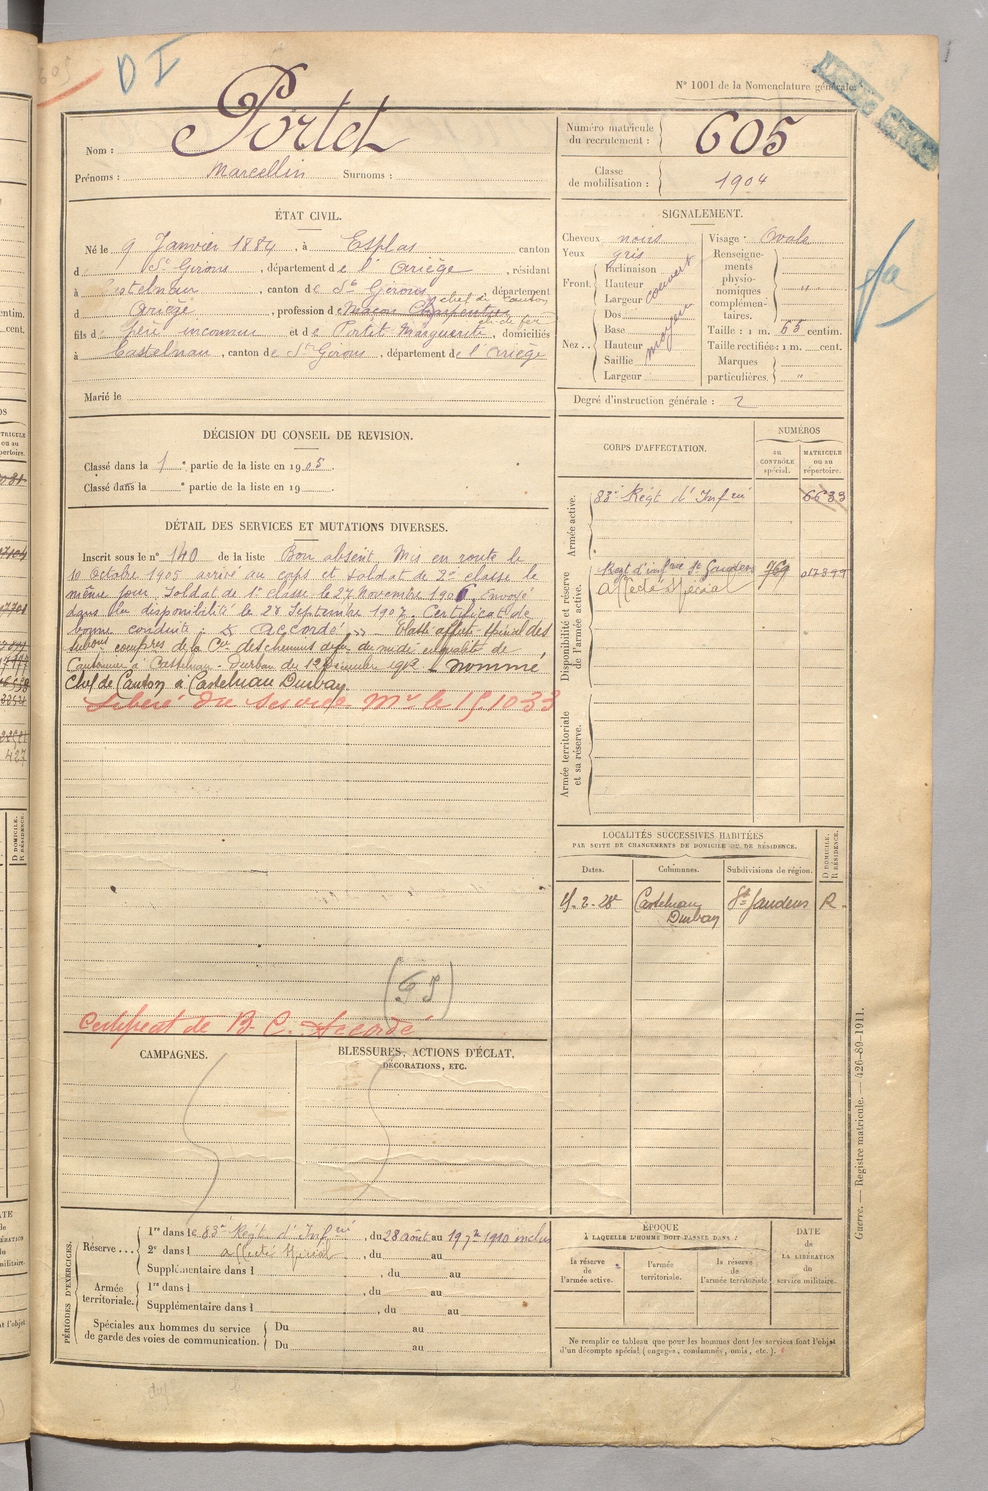 D I
N° 1001 de la Nomenclature générale.
Nom : Portet
Prénoms : Marcellin Surnoms :
Numéro matricule du recrutement : 605
Classe de mobilisation : 1904
ÉTAT CIVIL.
Né le 9 Janvier 1884, à Esplas canton
d St Girons, département de l'Ariège, résidant
à Castelnau, canton de St Girons, département
chef de canton
d Ariège, profession de Maçon Charpentier
fils d père inconnu et de Portet Marguerite, domiciliés
à Castelnau, canton de St Girons, département de l'Ariège
Marié le
SIGNALEMENT.
Cheveux noirs
Yeux gris
Front. Inclinaison
Hauteur
Largeur
couvert
Nez. Dos
Base
Hauteur
Saillie
Largeur
moyen
Visage : Ovale
Renseignements physionomiques complémentaires. "
Taille : 1 m. 65 centim.
Taille rectifiée : 1 m. cent.
Marques particulières. "
Degré d'instruction générale : 2
DÉCISION DU CONSEIL DE REVISION.
Classé dans la 1e partie de la liste en 1905.
Classé dans la e partie de la liste en 19
CORPS D'AFFECTATION.
NUMÉROS
au CONTRÔLE spécial.
MATRICULE ou au répertoire.
Armée active.
83e Régt d'Infrie 6633
Disponibilité et réserve de l'armée active.
Regt d'infrie St Gaudens 769 017899
Affecté spécial
Armée territoriale et sa réserve.
DÉTAIL DES SERVICES ET MUTATIONS DIVERSES.
Inscrit sous le n° 140 de la liste Bon absent. Mis en route le
10 Octobre 1905 arrivé au corps et soldat de 2e classe le
même jour. Soldat de 1e classe le 27 Novembre 1906. Envoyé
dans la disponibilité le 28 Septembre 1907. Certificat de
bonne conduite : " accordé " Classé affecté spécial des
subdons compres de la Cie des chemins de fer du midi en qualité de
Cantonnier à Castelnau-Durban du 12 Décembre 1909. Nommé
Chef de Canton à Castelnau Durban.
Libéré du service Mre le 15 10 33
Certificat de B. C. Accordé
LOCALITÉS SUCCESSIVES HABITÉES
PAR SUITE DE CHANGEMENTS DE DOMICILE OU DE RÉSIDENCE.
Dates. Communes. Subdivisions de région. D DOMICILE. R RÉSIDENCE.
Castelnau Durban St Gaudens R.
CAMPAGNES.
BLESSURES, ACTIONS D'ÉCLAT,
DÉCORATIONS, ETC.
PÉRIODES D'EXERCICES.
Réserve... 1re dans le 83e Régt d'Infrie, du 28 août au 19 7bre 1910 inclus
2e dans l affecté spécial, du au
Supplémentaire dans l, du au
Armée territoriale. 1re dans l, du au
Supplémentaire dans l, du au
Spéciales aux hommes du service de garde des voies de communication. Du au
Du au
ÉPOQUE
À LAQUELLE L'HOMME DOIT PASSER DANS :
la réserve de l'armée active.
l'armée territoriale.
la réserve de l'armée territoriale.
DATE de LA LIBÉRATION du service militaire.
Ne remplir ce tableau que pour les hommes dont les services font l'objet
d'un décompte spécial (engagés, condamnés, omis, etc.).
Guerre. — Registre matricule. — 426-89-1911.